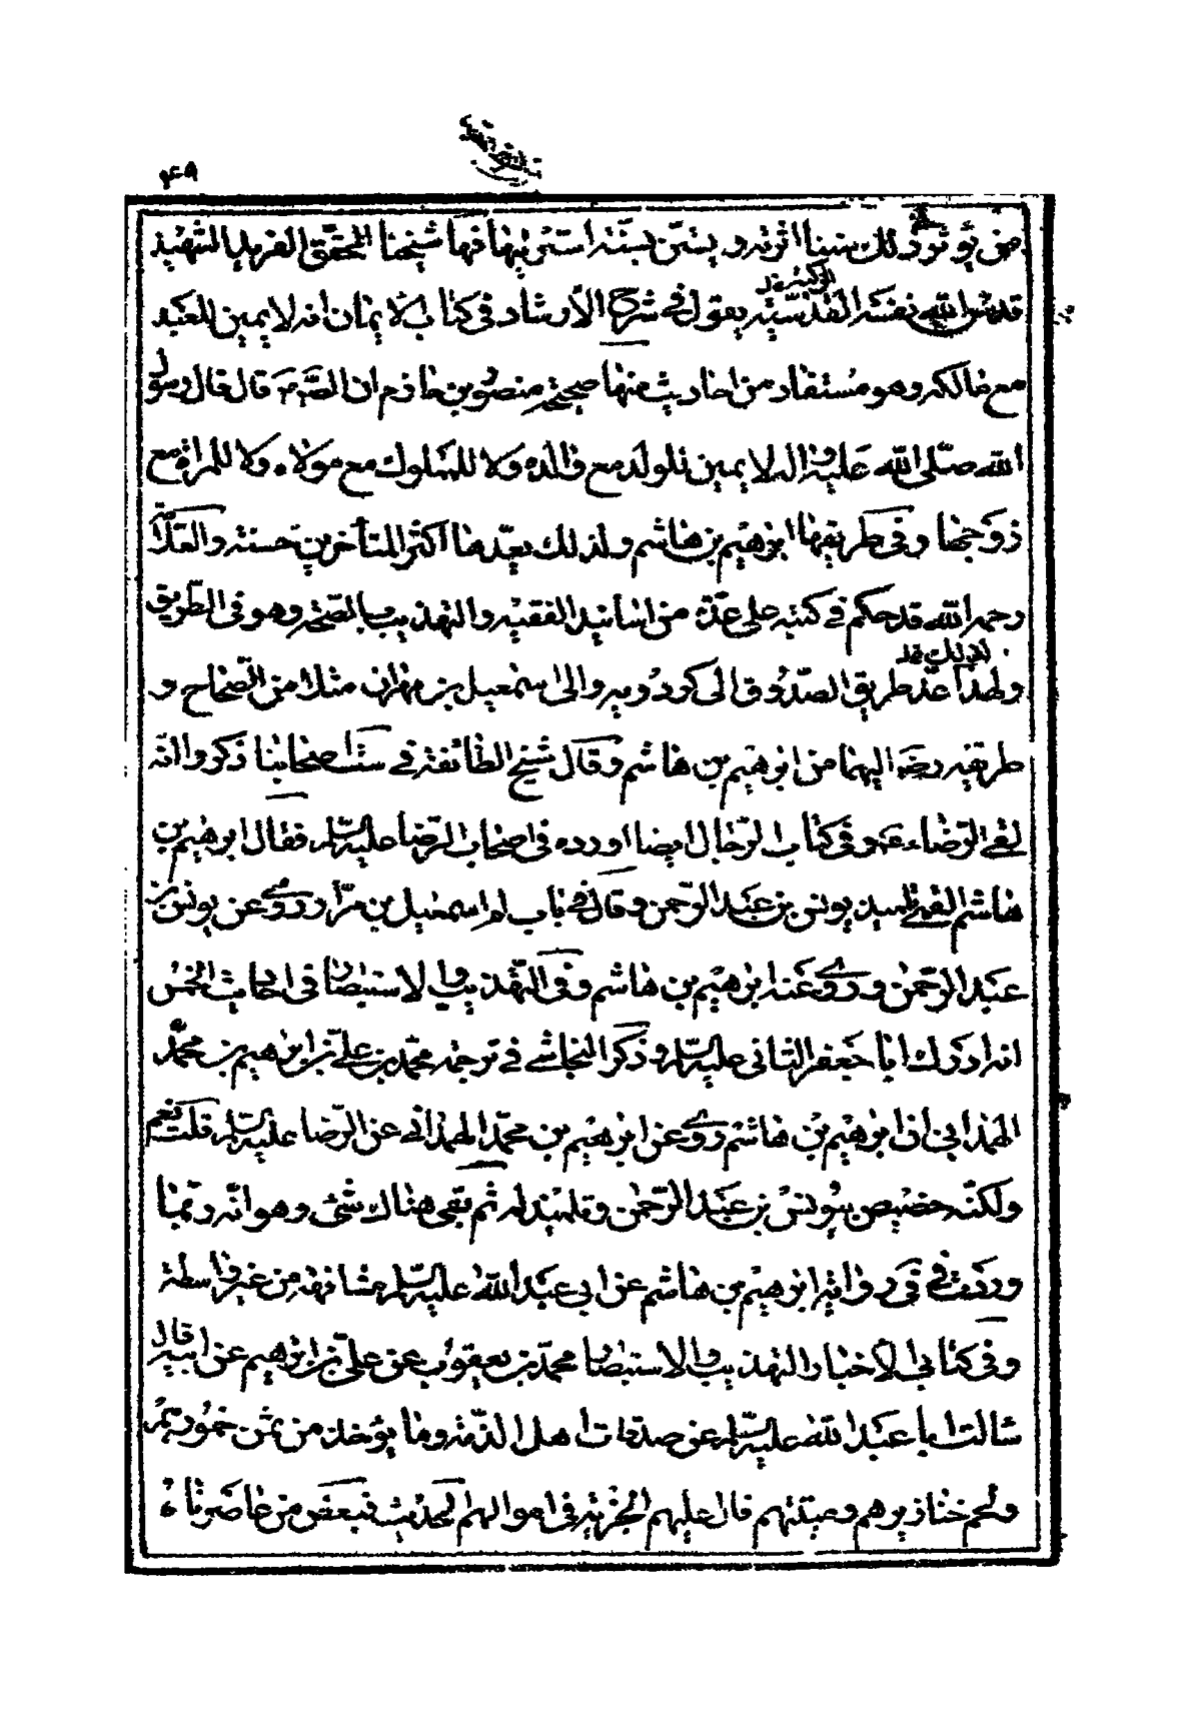 ٤٩
من يؤثر ذلك بيننا اثره و يستن بسنته استن بها فها شيخنا المحقق الفريد الشهيد
قدس الله نفسه القدسيه يقول في شرح الأرشاد في كتاب الايمان انه لا يمين للعبد
مع مالكه وهو مستفاد من احاديث منها صحيحة منصور بن حازم ان الصّ ع قال قال رسول
الله صلى الله عليه واله لا يمين للولد مع والده ولا للمملوك مع مولاه ولا للمراة مع
زوجها وفي طريقها ابرهيم بن هاشم ولذلك يعدها اكثر المتأخرين حسنة والعلّامة
رحمه الله قد حكم في كتبه على عدة من اسانيد الفقيه والتهذيب بالصحة وهو في الطريق
ولهذا عد طريق الصدوق الى كردويه والى اسمعيل بن مهران من الصحاح و
طريقه رضه اليهما من ابرهيم بن هاشم وقال شيخ الطائفة في ست اصحابنا ذكروا انه
لقى الرضاء ع وفي كتاب الرجال ايضا اورده في اصحاب الرضا عليه السلم فقال ابرهيم بن
هاشم القمي تلميذ يونس بن عبد الرحمن وقال في باب لم اسمعيل بن مرّار روى عن يونس بن
عبد الرحمن وروى عنه ابرهيم بن هاشم وفي التهذيب والاستبصار في احاديث الخمس
انه ادرك ابا جعفر الثاني عليه السلم وذكر النجاشي في ترجمة محمد بن علي بن ابرهيم بن محمد
الهمداني ان ابرهيم بن هاشم روى عن ابرهيم بن محمد الهمداني عن الرضا عليه السلم قلت نعم
ولكنه خصيص بيونس بن عبد الرحمن وتلميذ له ثم بقى هناك شئ وهو انه ربما
وردت في رواية ابرهيم بن هاشم عن ابي عبد الله عليه السلم مشافهة من غير واسطة
وفي كتابي الاخبار التهذيب والاستبصار محمد بن يعقوب عن علي بن ابرهيم عن ابيه قال
سالت ابا عبد الله عليه السلم عن صدقات اهل الذمة وما يؤخذ من ثمن خمورهم
ولحم خنازيرهم وميتتهم قال عليهم الجزية في اموالهم الحديث فبعض من عاصرناه